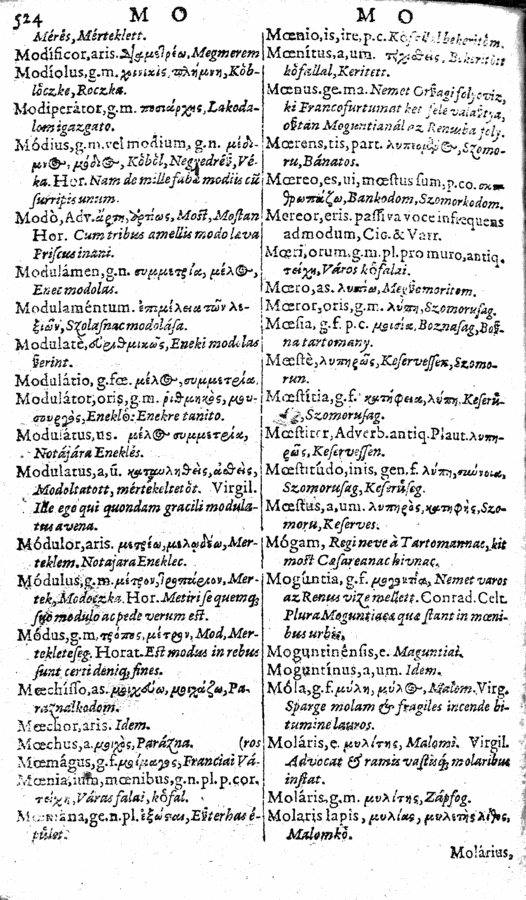 524 M O
Mérés, Mérteklett.
Modificor, aris. Megmerem
Modíolus, g.m. χοινικὶς, πλήμνη, Kôb-
lôczke, Roczka.
Modiperàtor, g.m. ποσιάρχης, Lakoda-
lom igazgato.
Módius, g.m. vel modium, g.n. μέδι-
μνος, μόδιος, Kôbôl, Negyedrész, Vé-
ka. Hor. Nam de mille fabæ modiis cũ
surripis unum.
Modò, Adv. ἄρτι, Most, Mostan
Hor. Cum tribus amellis modo læva
Priscus inani.
Modulámen, g.n. συμμετρία, μέλος,
Enec modolas.
Modulaméntum. ἐπιμέλεια τῶν λε-
ξιῶν, Szolasnac modolása.
Modulatè, Eneki modolas
szerint.
Modulátio, g.fœ. μέλος, συμμετρία.
Modulátor, oris, g.m. ῥιθμικὸς, μου-
σουργὸς, Eneklô: Enekre tanito.
Modulátus, us. μέλος συμμετρία,
Notájára Eneklés.
Modulatus, a, ũ.
Modoltatott, mértekeltetôt. Virgil.
Ille ego qui quondam gracili modula-
tus avena.
Módulor, aris. μετρέω, μελωδέω, Mer-
teklem. Notajara Eneklec.
Módulus, g.m. μέτρον, Mer-
tek, Modoczka. Hor. Metiri se quemq;
suo modulo ac pede verum est.
Módus, g.m, τρόπος, μέτρον, Mod, Mer-
tekleteseg. Horat. Est modus in rebus
sunt certi deniq; fines.
Mœchísso, as. Pa-
raznalkodom.
Mœchor, aris. Idem.
Mœchus, a. μοιχὸς, Parázna. (ros
Mœmágus, g.f. Franciai Vá-
Mœnia, ium, mœnibus, g.n. pl. p. cor.
τείχη, Városfalai, kôfal.
g.n. pl. ἐξώστια,
M O
Mœnio, is, ire, p.c. Kôfallal bekeritôm.
Mœnítus, a, um. Bekeritôtt
kôfallal, Keritett.
Mœnus. ge. ma. Nemet Orszagi folyoviz,
ki Francofurtumat ket fele valasztya,
osztán Moguntianál az Renusba foly.
Mœrens, tis, part. Szomo-
ru, Bánatos.
Mœreo, es, ui, mœstus sum, p.co. σκυ-
θρωπάζω, Bankodom, Szomorkodom.
Mereor, eris. passiva voce infrequens
admodum, Cic. & Varr.
Mœri, orum, g.m. pl. pro muro, antiq.
τείχη, Város kôfalai.
Mœro, as. λυπέω, Megszomoritem.
Mœror, oris, g.m. λύπη, Szomorusag.
Mœsia, g.f. p.c. μοισία, Boznasag, Bosz-
na tartomany.
Mœstè, λυπηρῶς, Keservessen, Szomo-
run.
Mœstítia, g.f. κατήφεια, λύπη. Keserü-
Szomorusag.
Mœstiter, Adverb. antiq. Plaut. λυπη-
ρῶς, Keservessen.
Mœstitúdo, inis, gen. f. λύπη,
Szomorusag, Keserüseg.
Mœstus, a, um. λυπηρὸς, κατηφὴς, Szo-
moru, Keserves.
Mógam, Regi neve à Tartomannac, kit
most Cæsareanac hivnac.
Mogúntia, g.f. μογουντία, Nemet varos
az Renus vize mellett. Conrad. Celt.
Plura Moguntiaca quæ stant in mœni-
bus urbis,
Moguntinénsis, e. Maguntiai.
Moguntínus, a, um. Idem.
Móla, g.f. μύλη, μύλος, Malom. Virg.
Sparge molam & fragiles incende bi-
tumine lauros.
Moláris, e. μυλίτης, Malomi. Virgil.
Advocat & ramis vastisq; molaribus
instat.
Moláris, g.m. μυλίτης, Zápfog.
Molaris lapis, μυλίας, μυλίτης λίθος,
Malomkô.
Molárius,